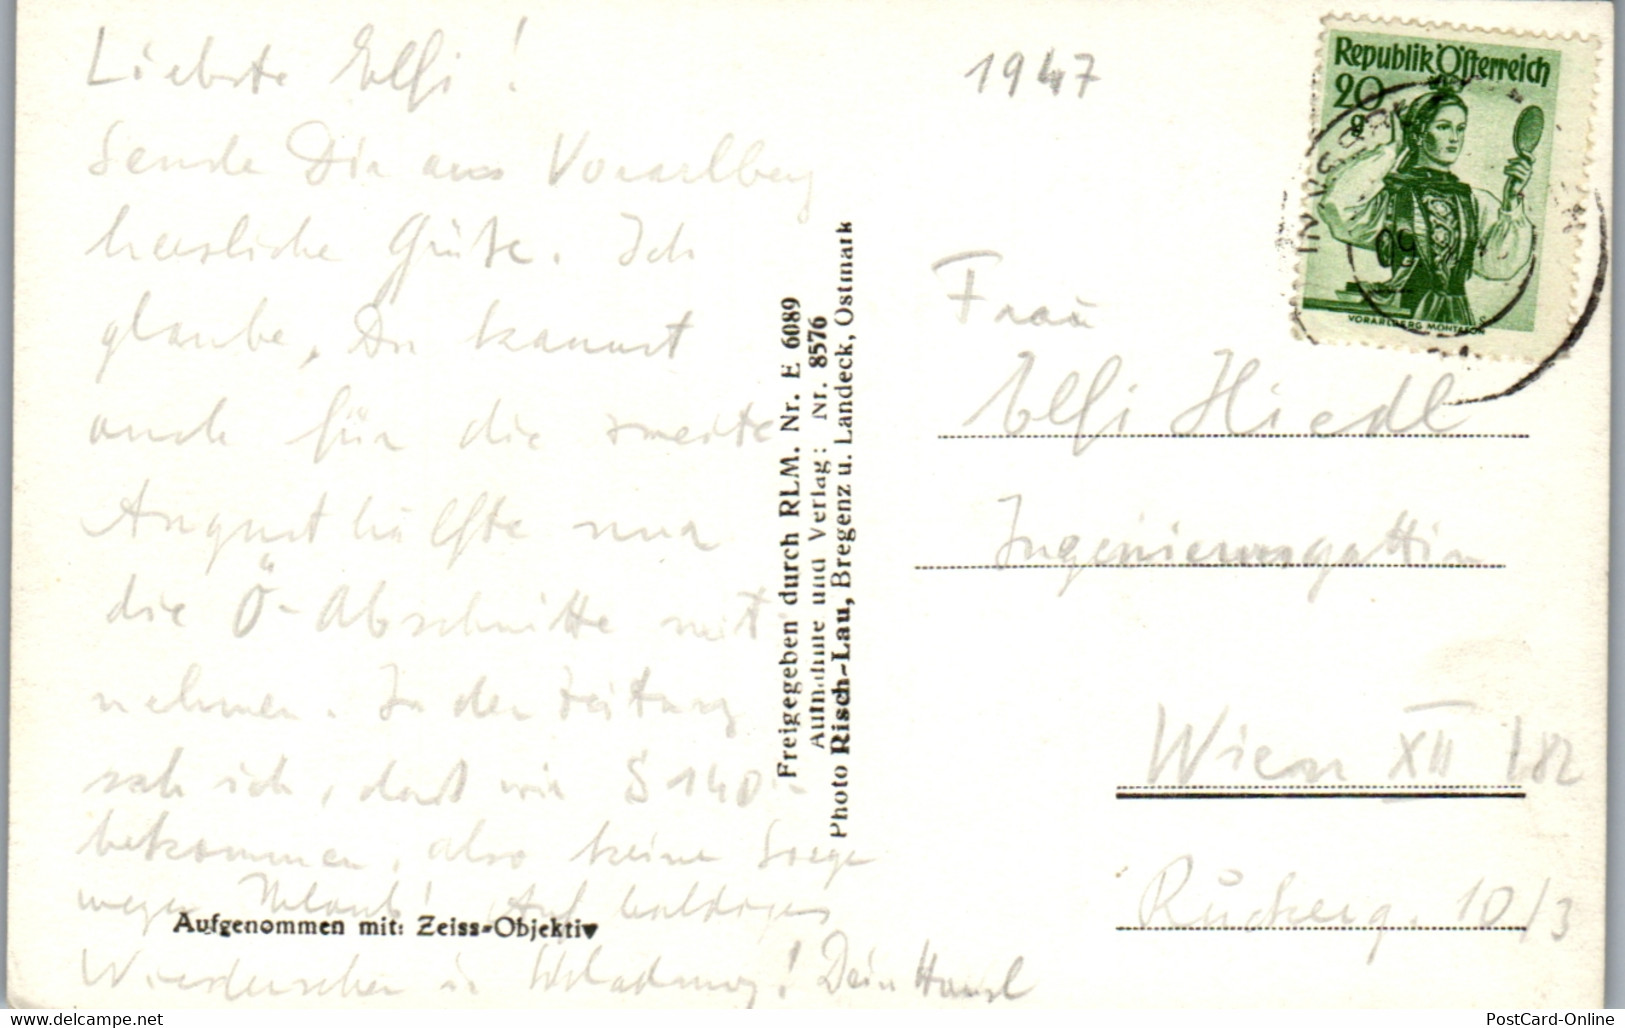 Liebste Elfi!
Sende Dir aus Vorarlberg
herzliche Grüße. Ich
glaube, Du kannst
auch für die zweite
Augusthälfte nur
die Ö-Abschnitte mit
nehmen. In der Zeitung
sah ich, daß wir S 140.-
bekommen, also keine Sorge
wegen Urlaub! Auf baldiges
Wiedersehen in Schladming! Dein Hansl
Aufgenommen mit: Zeiss-Objektiv
Freigegeben durch RLM. Nr. E 6089
Aufnahme und Verlag: Nr. 8576
Photo Risch-Lau, Bregenz u. Landeck, Ostmark
1947
Republik Österreich
20
g
VORARLBERG MONTAFON
INNSBRUCK
50
Frau
Elfi Hiedl
Ingenieursgattin
Wien XII /82
Ruckerg. 10/3
PostCard-Online.com
PostCard-Online